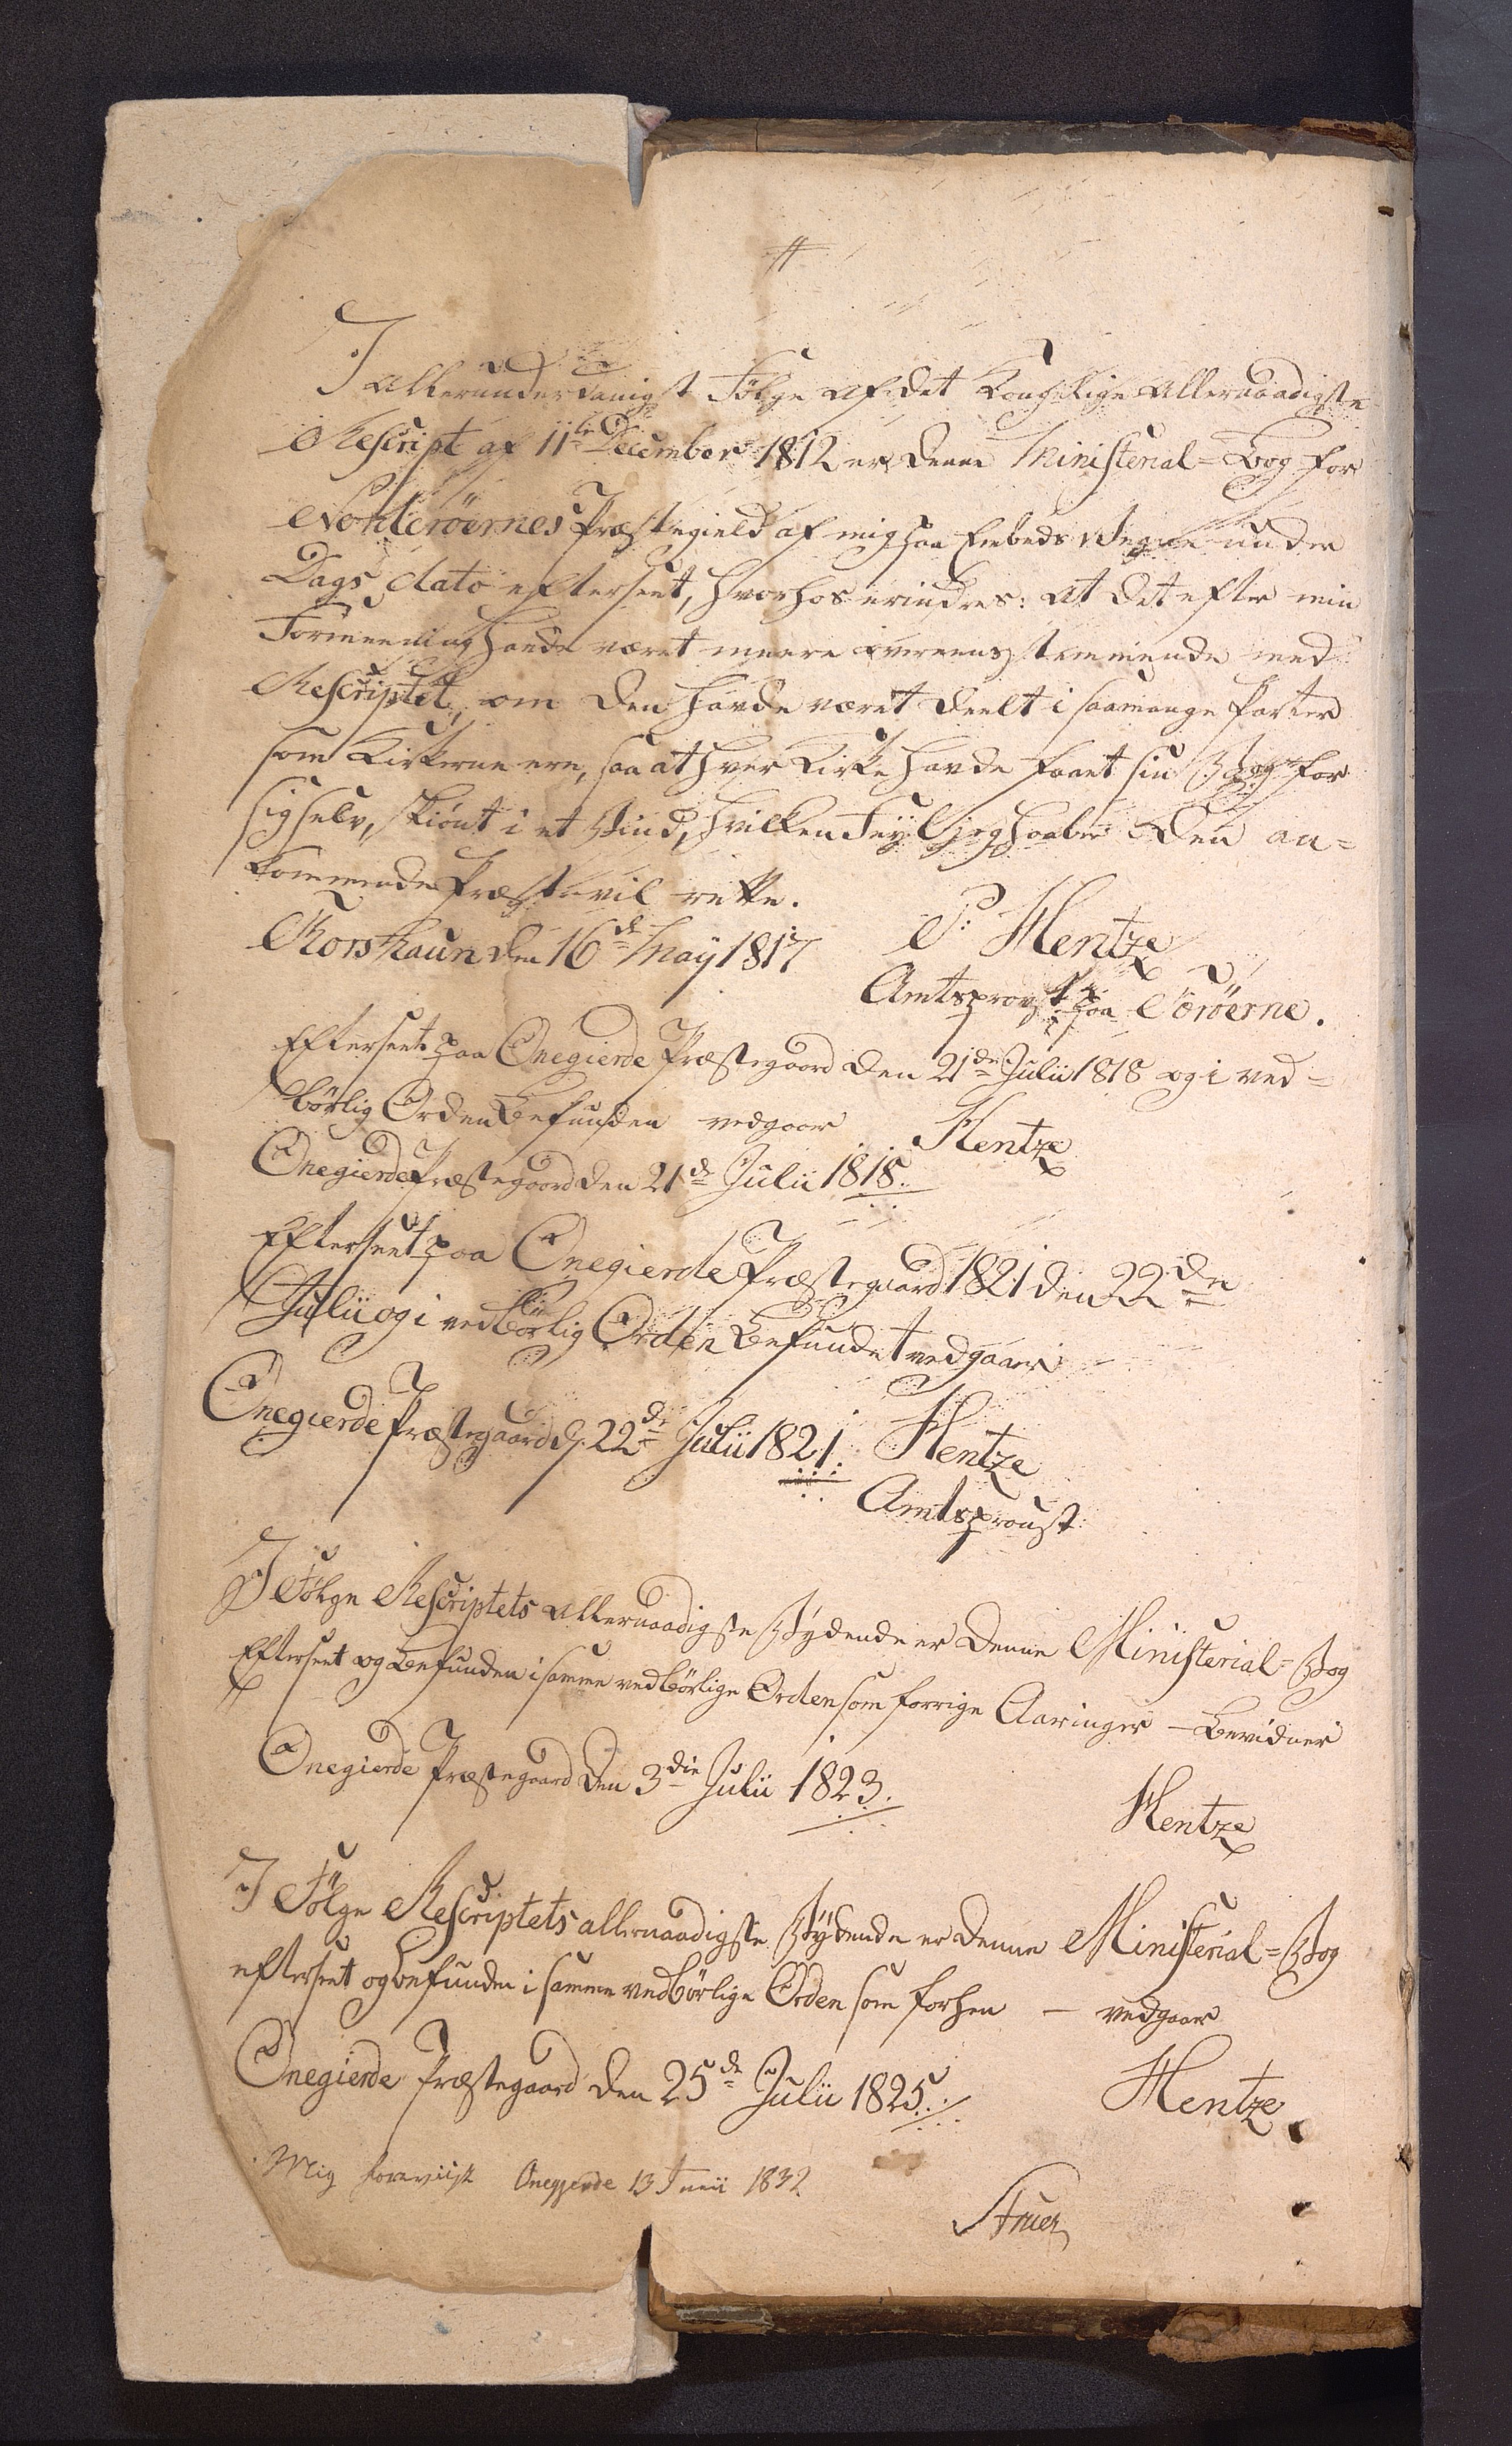 I allerunderdanigst Følge af det Kongelige allernaadigste
Rescript af 11te December 1812 er denne Ministerial=Bog for
Norderöernes Præstegield af mig paa Embeds Vegne under
Dags Dato efterseet, hvorhos erindres: at det efter min
Formeening havde været meere overeensstemmende med
Rescriptet, om den havde været deelt i saamange Parter
som Kirkerne ere, saa at hver Kirke havde faaet sin Bog for
sig selv, skiönt i et Bind, hvilken Feyl jeg haaber den an=
kommende Præst vil rette.
Thorshaun den 16de May 1817
P: Hentze
Amtsprovst paa Færöerne.
Efterseet paa Onegierde Præstegaard den 21de Julii 1818 og i ved=
börlig Orden Befunden vedgaar
Hentze
Onegierde Præstegaard den 21de Julii 1818.
Efterseet paa Onegierde Præstegaard 1821 den 22den
Julii og i vedbörlig Orden Befundet vedgaaer
Onegierde Præstegaard d. 22de Julii 1821.
Hentze
Amtsproust
I Fölge Rescriptets allernaadigste Bydende er denne Ministerial=Bog
Efterseet og Befunden i samme vedbörlige Orden som forrige Aaringer – Bevidner
Onegierde Præstegaard den 3die Julii 1823.
Hentze
I Fölge Rescriptets allernaadigste Bydende er denne Ministerial=Bog
efterseet og befunden i samme vedbörlige Orden som forhen – vedgaar
Onegierde Præstegaard den 25de Julii 1825.
Hentze.
Mig foreviist Onegjerde 13 Junii 1832